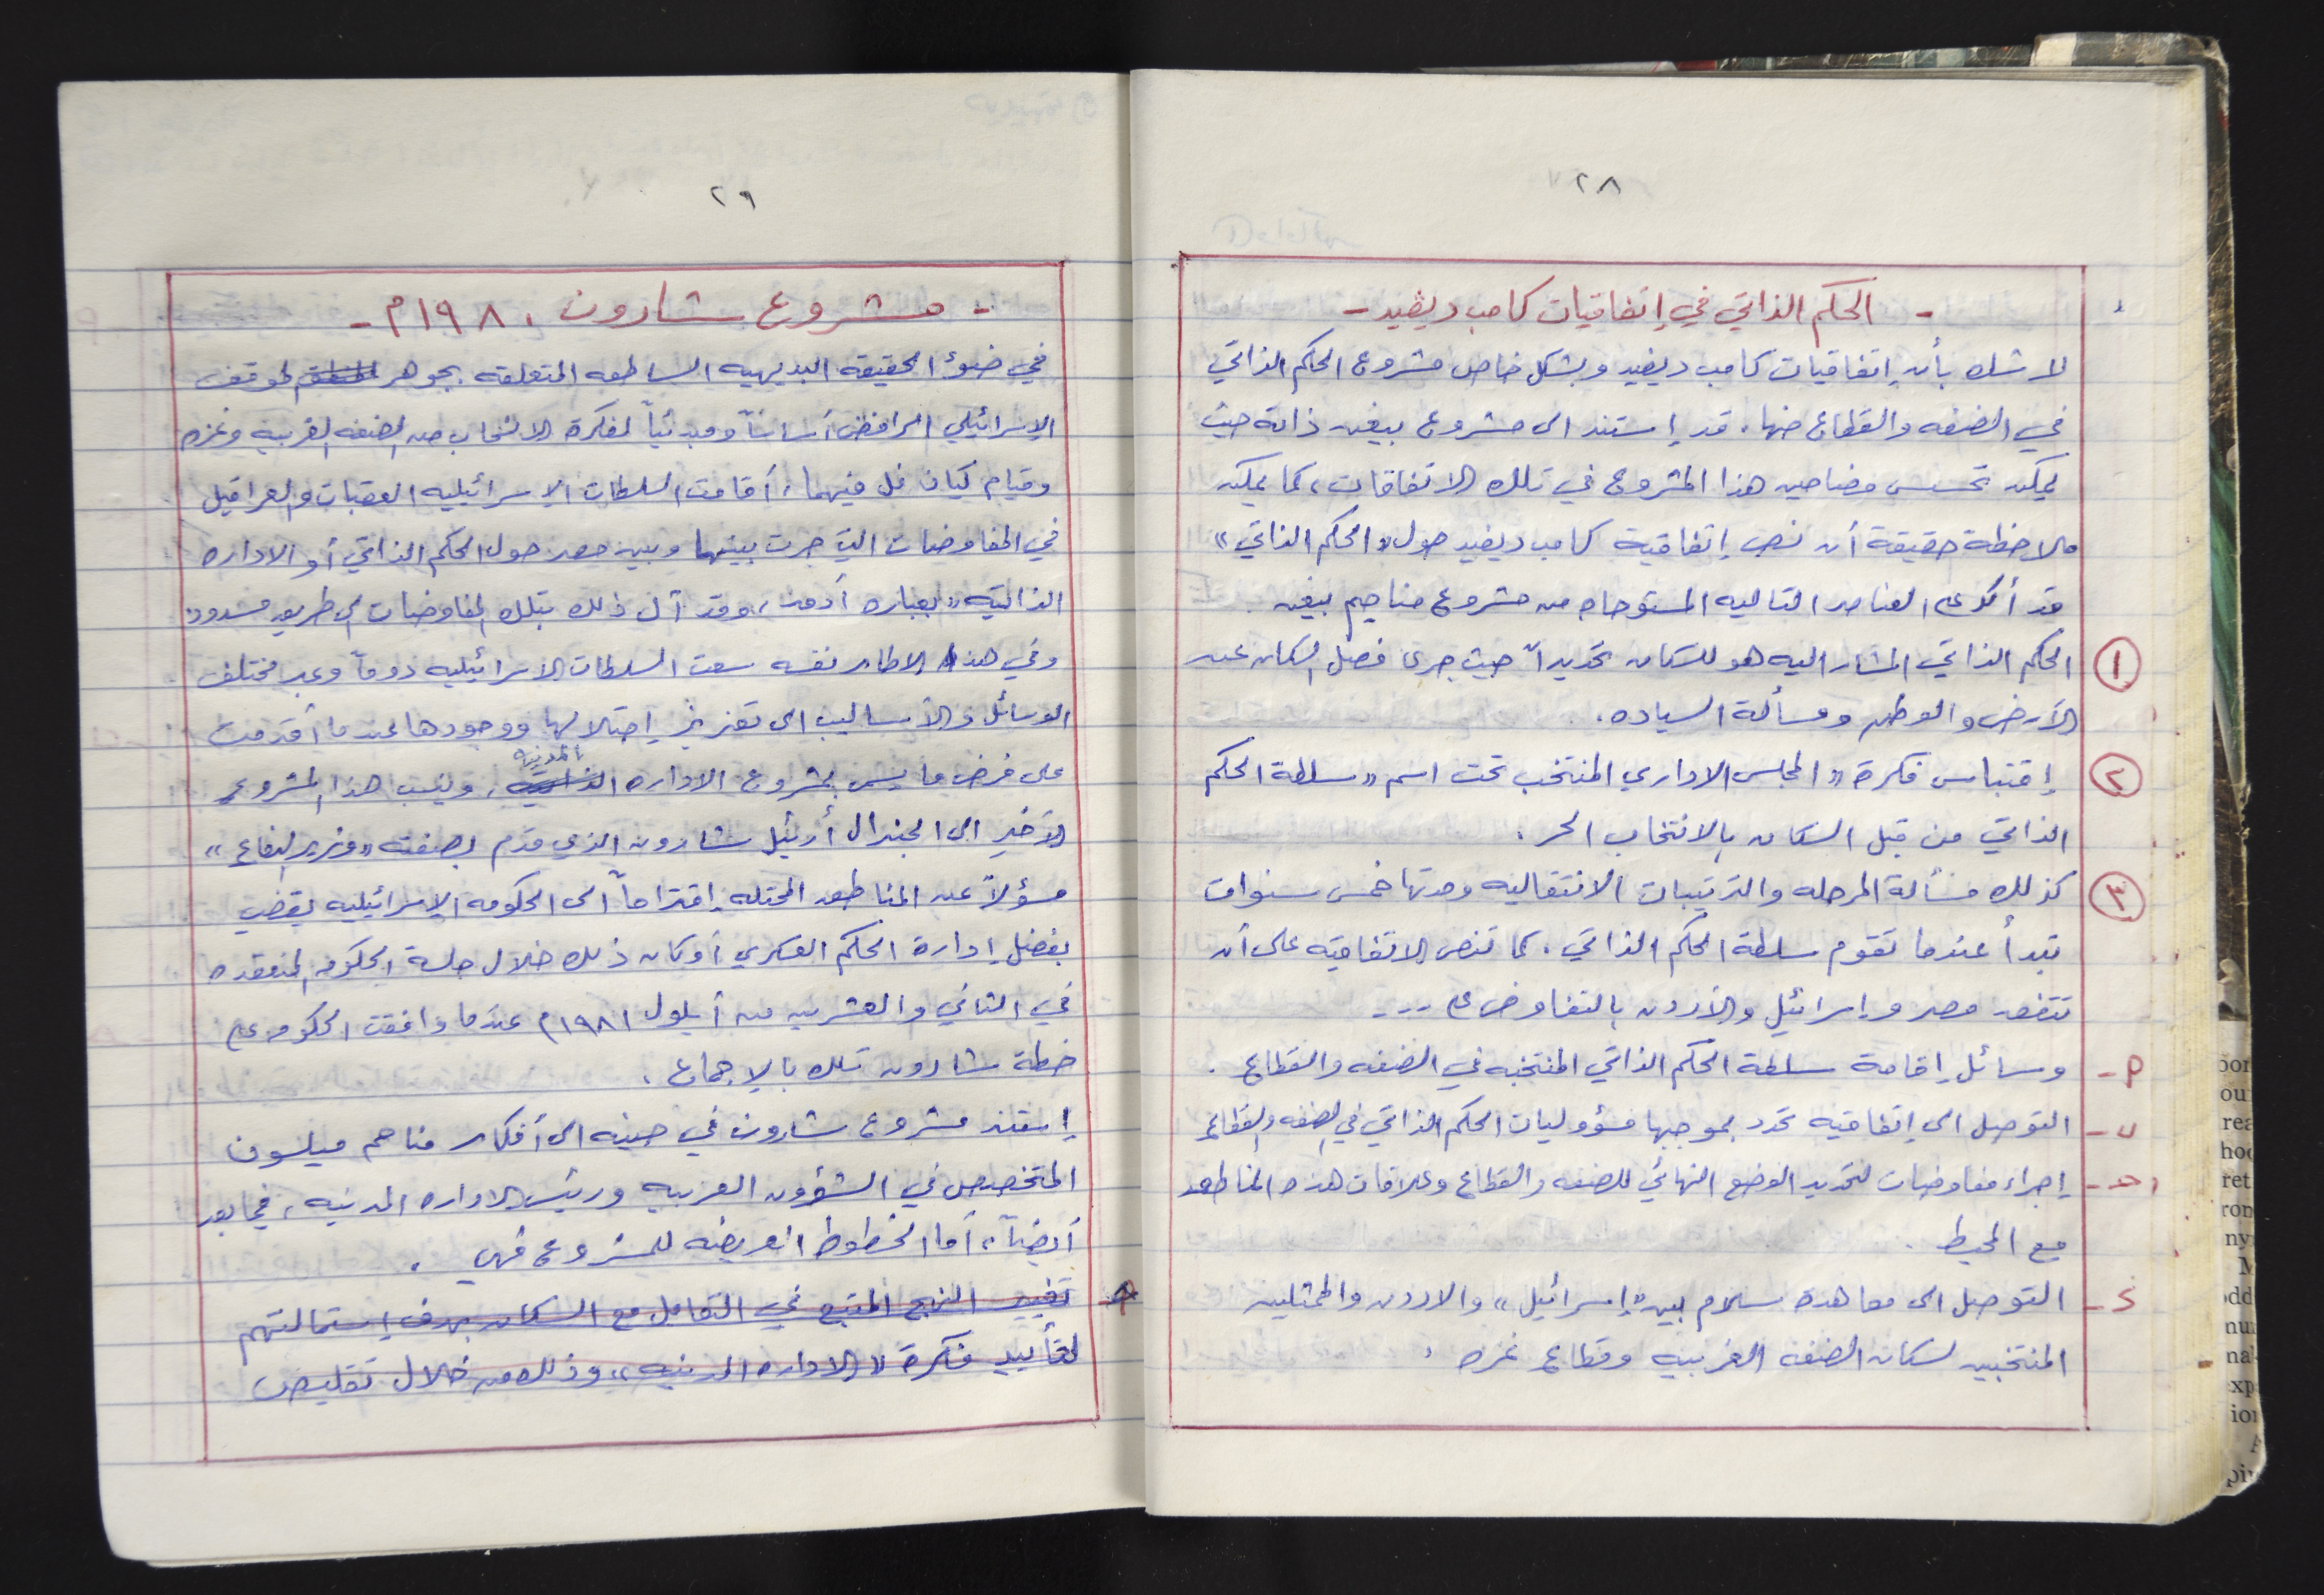 ٢٨
- الحكم الذاتي في إتفاقيات كامب ديفيد -
لا شك بأن إتفاقيات كامب ديفيد وبشكل خاص مشروع الحكم الذاتي
في الضفه والقطاع منها، قد إستند الى مشروع بيغن ذاته حيث
يمكن تحسس مضامين هذا المشروع في تلك الاتفاقات، كما يمكن
ملاحظة حقيقة أن نص إتفاقية كامب ديفيد حول «الحكم الذاتي»
قد أكد على العناصر التاليه المستوحاه من مشروع مناحيم بيغن.
١ الحكم الذاتي المشار اليه هو للسكان تحديداً حيث جرى فصل السكان عن
الأرض والوطن ومسألة السياده.
٢ إقتباس فكرة «المجلس الاداري المنتخب تحت اسم «سلطة الحكم
الذاتي من قبل السكان بالانتخاب الحر.
٣ كذلك مسألة المرحله والترتيبات الانتقاليه ومدتها خمس سنوات
تبدأ عندما تقوم سلطة الحكم الذاتي. كما تنص الاتفاقيه على أن
تتعهد مصر وإسرائيل والأردن بالتفاوض على ...
م- وسائل إقامة سلطة الحكم الذاتي المنتخبه في الضفه والقطاع.
ب- التوصل الى إتفاقيه تحدد بموجبها مسؤوليات الحكم الذاتي في الضفه والقطاع
حـ- إجراء مفاوضات لتحديد الوضع النهائي للضفه والقطاع وعلاقات هذه المناطق
مع المحيط.
د- التوصل الى معاهدة سلام بين «إسرائيل» والاردن والممثلين
المنتخبين لسكان الضفه الغربيه وقطاع غزه.
٢٩
- مشروع شارون ١٩٨٠م -
في ضوء الحقيقه البديهيه الساطعه المتعلقه بجوهر الموقف
الإسرائيلي الرافض أساساً ومبدئياً لفكرة الانسحاب من الضفه الغربيه وغزه
وقيام كيان فل فيهما، أقامت السلطات الاسرائيليه العقبات والعراقيل
في المفاوضات التي جرت بينها وبين مصر حول الحكم الذاتي أو الاداره
الذاتيه «بعباره أدق، وقد آل ذلك بتلك المفاوضات الى طريق مسدود،
وفي هذا الاطار نفسه سعت السلطات الاسرائيليه دوماً وعبر مختلف
الوسائل والأساليب الى تعزيز إحتلالها ووجودها عندما أقدمت
على فرض ما يسمى بمشروع الاداره الذاتيه المدنيه، وينسب هذا المشروع
الأخير الى الجنرال أرئيل شارون الذي قدم بصفته «وزير الدفاع»
مسؤولاً عن المناطق المحتله إقتراحاً الى الحكومه الإسرائيليه يقضي
بفصل إدارة الحكم العسكري أوكان ذلك خلال جلسة الحكومه المنعقده
في الثاني والعشرين من أيلول ١٩٨١م عندما وافقت الحكومه على
خطة شارون تلك بالإجماع.
إستند مشروع شارون في حينه الى أفكار مناحم ميلسون
المتخصص في الشؤون العربيه ورئيس الاداره المدنيه، فيما بعد
أيضاً، أما الخطوط العريضه للمشروع فهي.
م- تغيير النهج المتبع في التعامل مع السكان بهدف إستمالتهم
لتأييد فكرة «الاداره المدنيه» وذلك من خلال تقليص